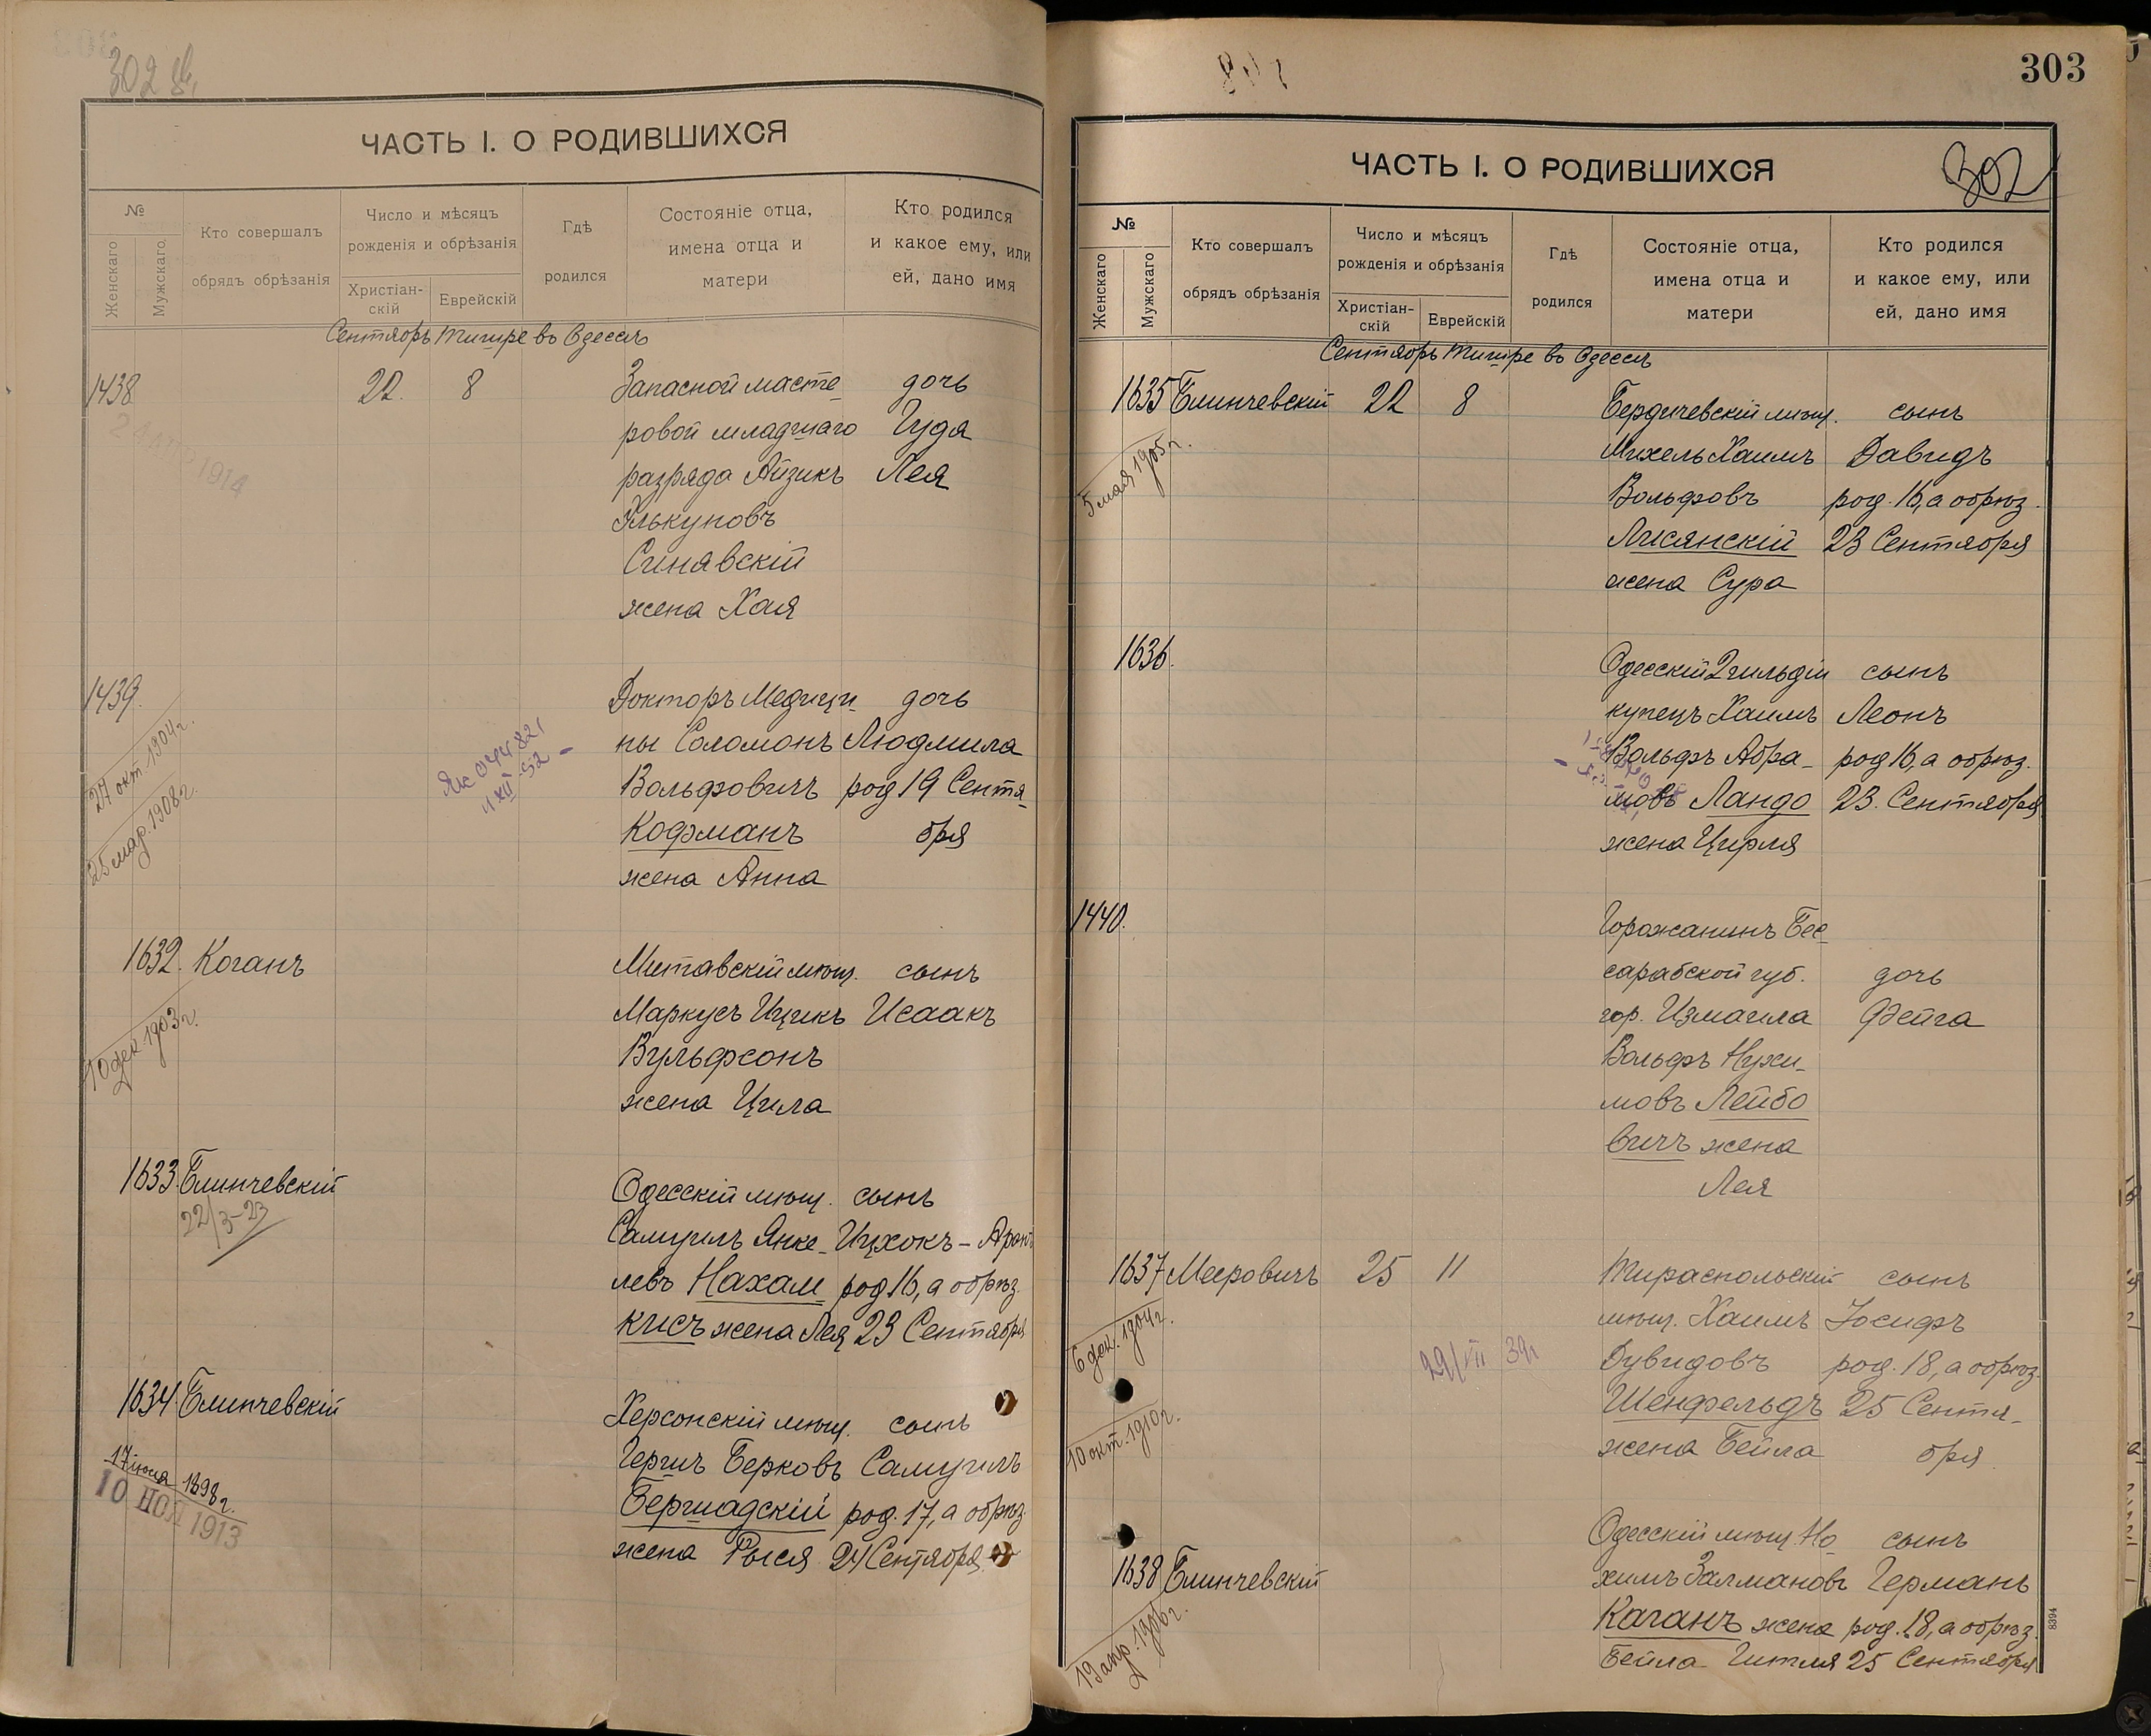 302
ЧАСТЬ I. О РОДИВШИХСЯ
№
Женскаго
Мужскаго
Кто совершалъ
обрядъ обрѣзанія
Число и мѣсяцъ
рожденія и обрѣзанія
Христіан-
скій
Еврейскій
Гдѣ
родился
Состояніе отца,
имена отца и
матери
Кто родился
и какое ему, или
ей, дано имя
Сентябрь Тишре въ Одессѣ
1438 22. 8 Запасной масте- дочь
ровой младшаго Гудя
разряда Айзикъ Лея
Синявскій
жена Хая
1914
1439. Докторъ Медици- дочь
ны Соломонъ Людмила
Вольфовичъ род 19 Сентя-
Кофманъ бря
жена Анна
27 окт. 1904г.
25 мар. 1908г.
1632. Коганъ Митавскій мѣщ. сынъ
Маркусъ Ицикъ Исаакъ
Вульфсонъ
жена Цила
10 дек 1903г.
1633 Блинчевскій Одесскій мѣщ. сынъ
22/3-23
Самуилъ Янке- Ицхокъ-Аронъ
левъ Нахам- род 16, а обрѣз.
кисъ жена Лея 23 Сентября
1634 Блинчевскій Херсонскій мѣщ. сынъ
Гершъ Берковъ Самуилъ
Бершадскій род. 17, а обрѣз.
жена Рыся 24 Сентября
17 іюня 1898г.
10 НОЯ 1913
303
ЧАСТЬ I. О РОДИВШИХСЯ
302
№
Женскаго
Мужскаго
Кто совершалъ
обрядъ обрѣзанія
Число и мѣсяцъ
рожденія и обрѣзанія
Христіан-
скій
Еврейскій
Гдѣ
родился
Состояніе отца,
имена отца и
матери
Кто родился
и какое ему, или
ей, дано имя
Сентябрь Тишре въ Одессѣ
1635 Блинчевскій 22 8 Бердичевскій мѣщ. сынъ
Михель Хаимъ Давидъ
Вольфовъ род. 16, а обрѣз.
Лисянскій 23 Сентября
жена Сура
5 мая 1905г.
1636. Одесскій 2 гильдіи сынъ
купецъ Хаимъ Леонъ
Вольфъ Абра- род 16, а обрѣз.
мовъ Ландо 23. Сентября
жена Цирля
1440. Горожанинъ Бес-
сарабской губ. дочь
гор. Измаила Фейга
Вольфъ Нухи-
мовъ Лейбо
вичъ жена
Лея
1637 Мееровичъ 25 11 Тираспольскій сынъ
мѣщ. Хаимъ Іосифъ
Дувидовъ род. 18, а обрѣз.
Шенфельдъ 25 Сентя-
жена Бейла бря
6 дек. 1904г.
29/VII 39г
10 окт. 1910г.
Одесскій мѣщ. Но- сынъ
1638 Блинчевскій химъ Залмановъ Германъ
Каганъ жена род. 18, а обрѣз.
Бейла-Гитля 25 Сентября
19 апр. 1906г.
8394